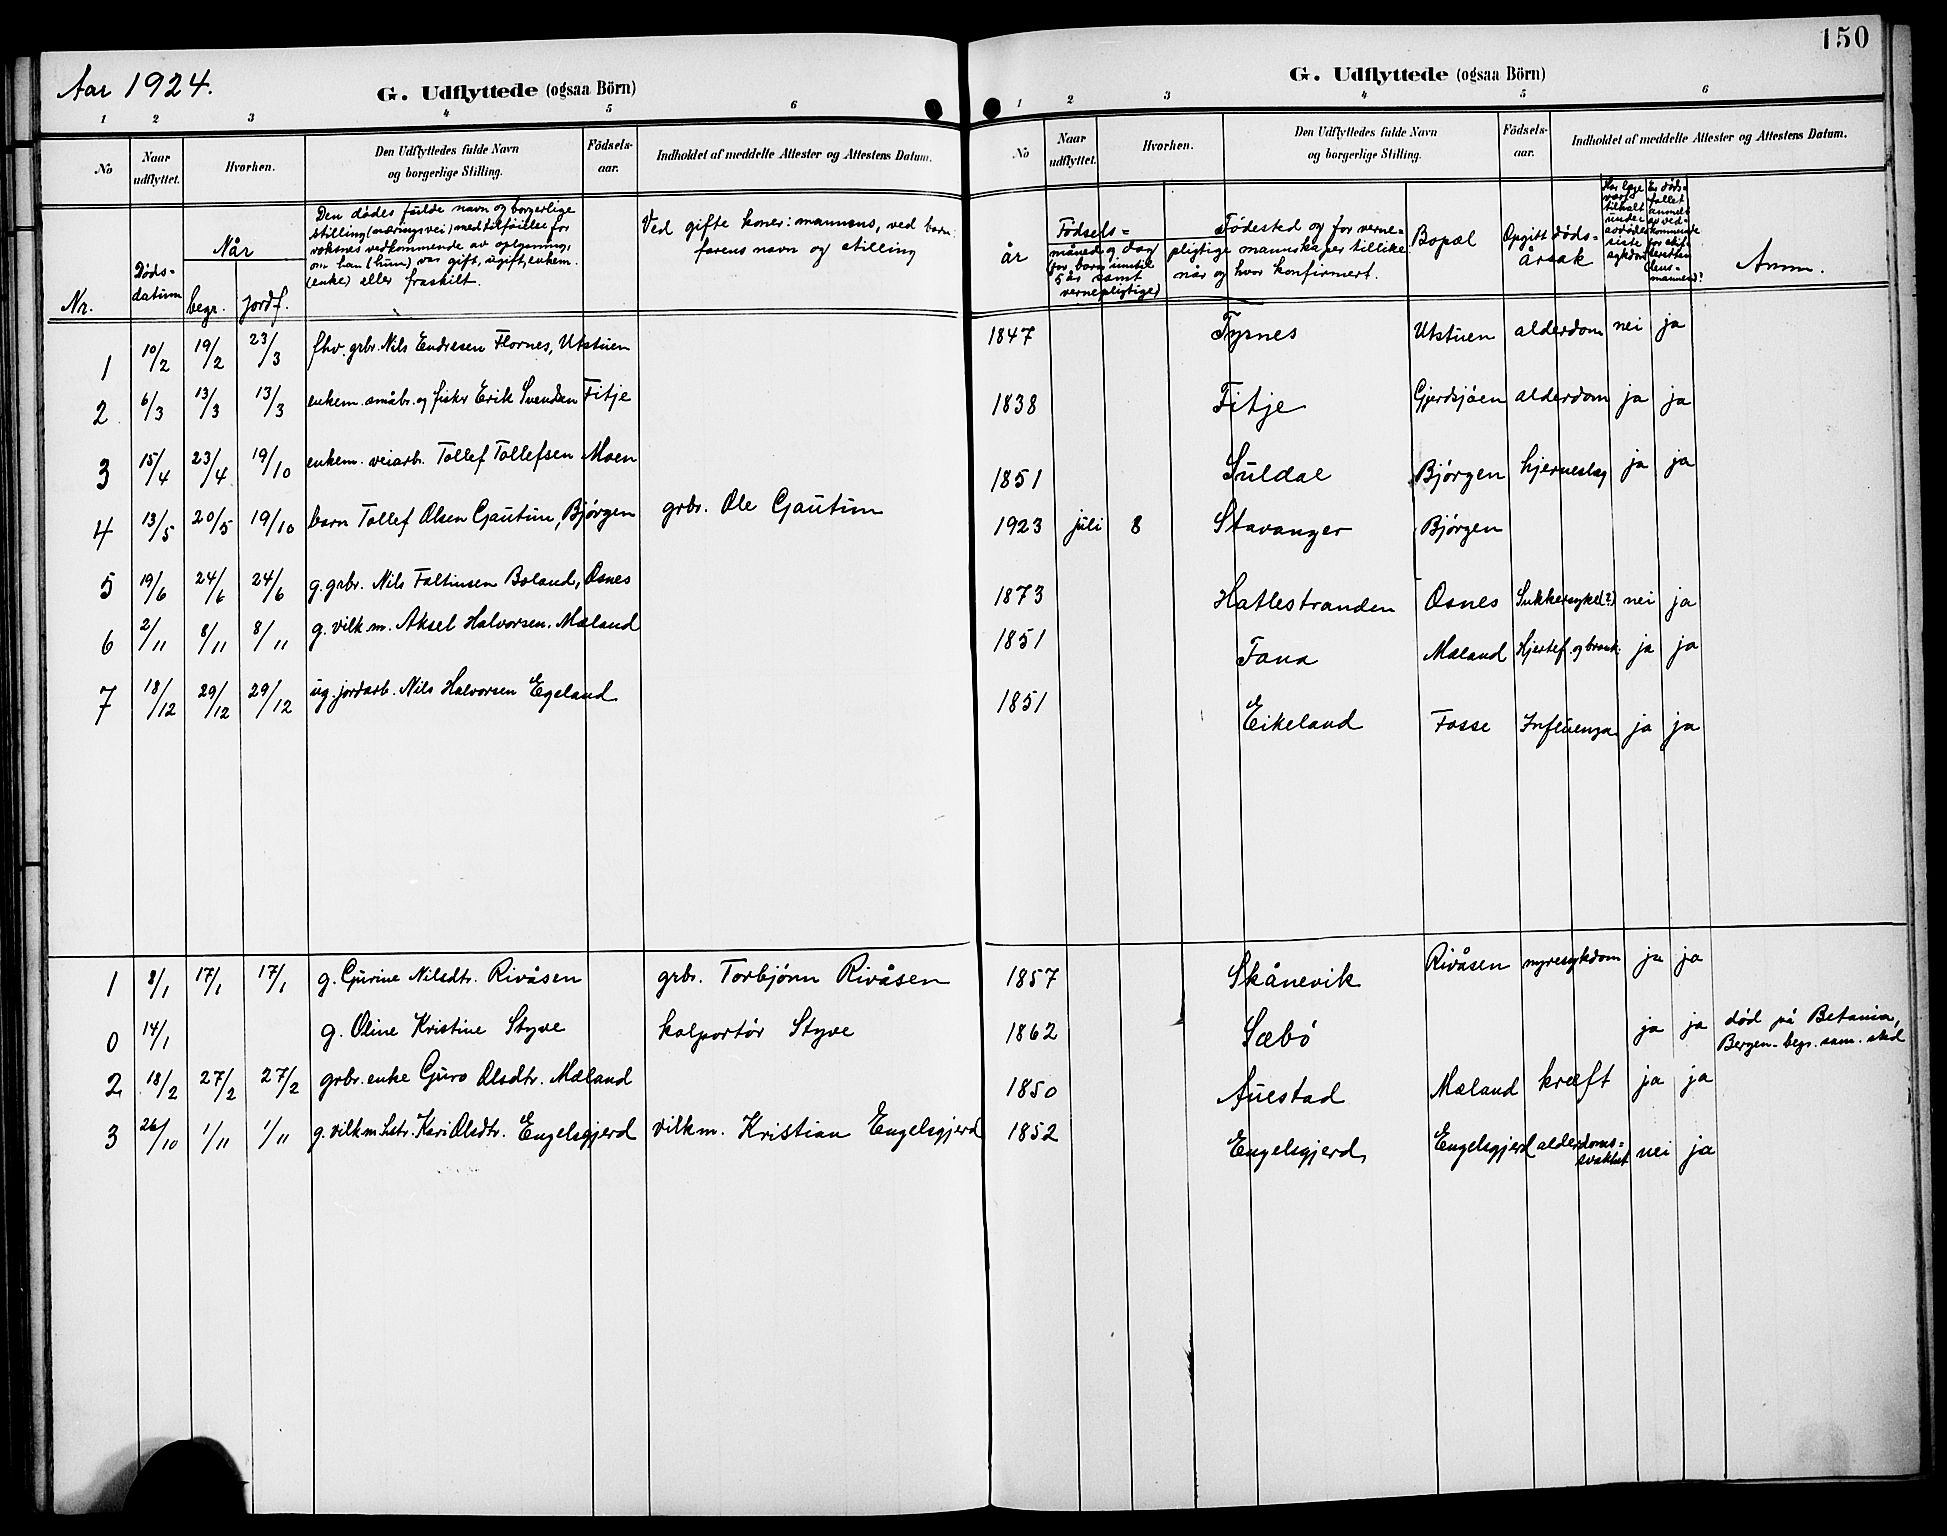 Aar 1924.
G. Udflyttede (ogsaa Börn)
1 2 3 4 5 6
No
Naar udflyttet.
Hvorhen.
Den Udflyttedes fulde Navn og borgerlige Stilling.
Födsels-aar.
Indholdet af meddelte Attester og Attestens Datum.
Nr.
Döds-datum
Når
begr. jordf.
Den dødes fulde navn og borgerlige
stilling (næringsvei) med tilføielse for
voksnes vedkommende av oplysning,
om han (hun) var gift, ugift, enkem.
(enke) eller fraskilt.
Ved gifte koner: mannens, ved barn:
farens navn og stilling
1 10/2 19/2 23/3 fhv. grbr. Nils Endresen Flornes, Utstuen
2 6/3 13/3 13/3 enkem. småbr. og fisker Erik Svendsen Fitje
3 15/4 23/4 19/10 enkem. veiarb. Tollef Tollefsen Moen
4 13/5 20/5 19/10 barn Tollef Olsen Gautun, Bjørgen grbr. Ole Gautun
5 19/6 24/6 24/6 g. grbr. Nils Faltinsen Boland, Osnes
6 2/11 8/11 8/11 g. vilkm. Aksel Halvorsen Mæland
7 18/12 29/12 29/12 ug. jordarb. Nils Halvorsen Egeland
1 8/1 17/1 17/1 g. Gurine Nilsdtr. Rivåsen grbr. Torbjørn Rivåsen
0 14/1 g. Oline Kristine Styve kolportør Styve
2 18/2 27/2 27/2 grbr. enke Guro Olsdtr. Mæland
3 26/10 1/11 1/11 g. vilkm. Kari Olsdtr. Engelsgjerd vilkm. Kristian Engelsgjerd
150
G. Udflyttede (ogsaa Börn)
1 2 3 4 5 6
No
Naar udflyttet.
Hvorhen.
Den Udflyttedes fulde Navn og borgerlige Stilling.
Födsels-aar.
Indholdet af meddelte Attester og Attestens Datum.
år
Fødsels=
måned og dag
(for barn inntil
5 år samt
vernepligtige)
Fødested og for verne=
pligtige mannskaper tillike
når og hvor konfirmert.
Bopæl
Opgitt døds=
årsak
Har læge
vært
tilkalt
under
avdødes
siste
sykdom
Er døds=
fallet
anmeldt
av ved=
kommende
for skif=
teretten
lens=
mannen?
Anm.
1847 Tysnes Utstuen alderdom nei ja
1838 Fitje Gjerdsjøen alderdom ja ja
1851 Suldal Bjørgen hjerneslag ja ja
1923 juli 8 Stavanger Bjørgen
1873 Hatlestranden Osnes Sukkersyke(?) nei ja
1851 Fana Mæland Hjertef. og bronk. ja ja
1851 Eikeland Fosse Influenza ja ja
1857 Skånevik Rivåsen nyresykdom ja ja
1862 Sæbö ja ja død på Betania,
Bergen - begr. sam. sted
1850 Auestad Mæland kræft ja ja
1852 Engelsgjerd Engelsgjerd alderdoms=
svakhet nei ja